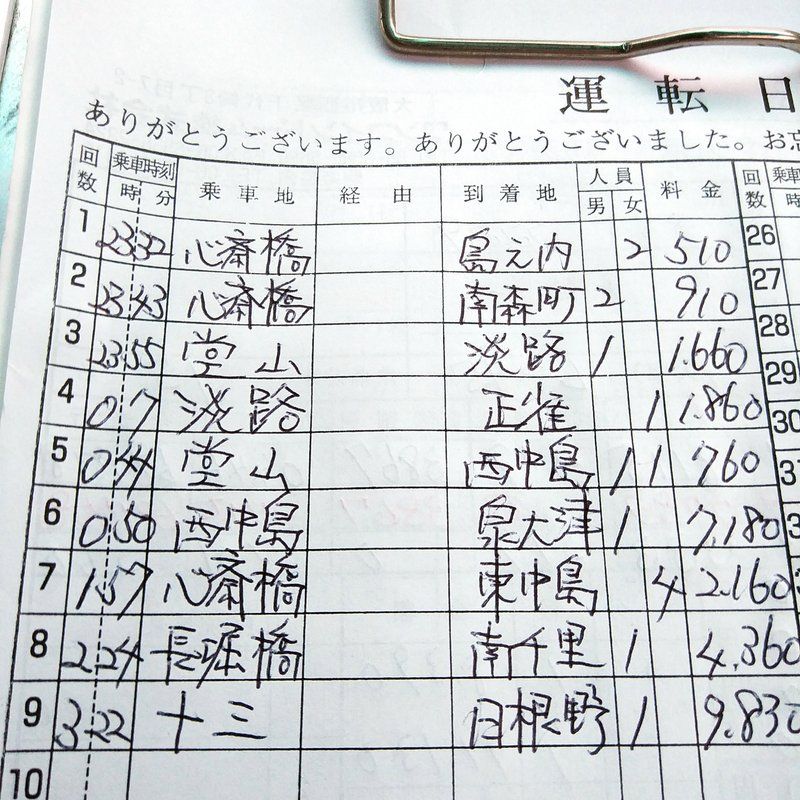 運転日
ありがとうございます。ありがとうございました。お忘
回数 乗車時刻 時 分 乗車地 経由 到着地 人員 男 女 料金 回数 乗車 時
1 23 32 心斎橋 島之内 2 510 26
2 23 43 心斎橋 南森町 2 910 27
3 23 55 堂山 淡路 1 1.660 28
4 0 7 淡路 正雀 1 1.860 29
5 0 44 堂山 西中島 1 1 760 30
6 0 50 西中島 泉大津 1 7.180
7 1 57 心斎橋 東中島 4 2.160
8 2 24 長堀橋 南千里 1 4.360
9 3 22 十三 日根野 1 9.830
10